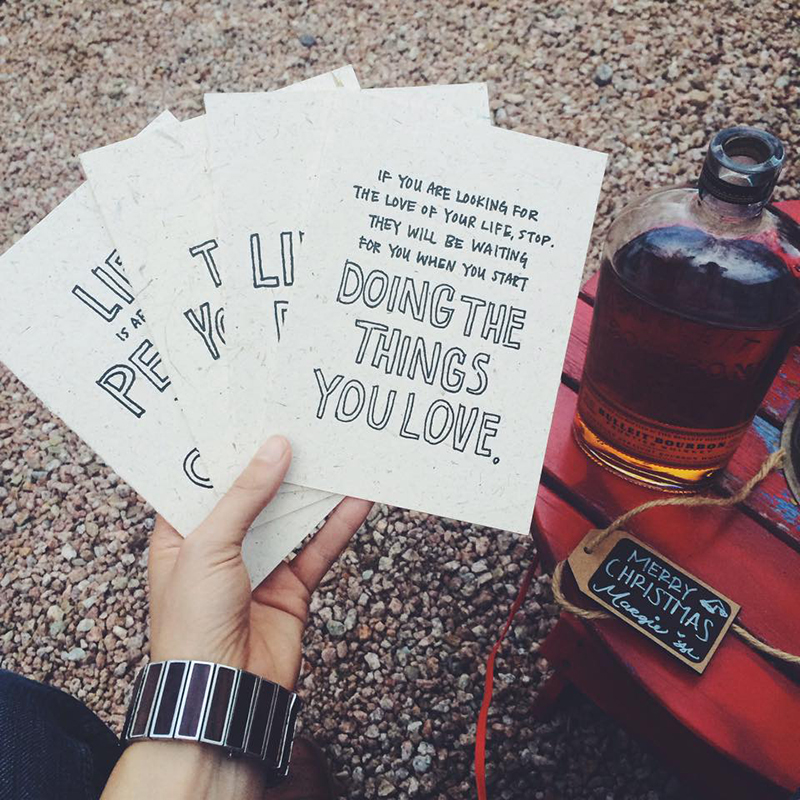 LIF
IS AR
PE
T
YO
LI
IF YOU ARE LOOKING FOR
THE LOVE OF YOUR LIFE, STOP.
THEY WILL BE WAITING
FOR YOU WHEN YOU START
DOING THE
THINGS
YOU LOVE.
BULLEIT BOURBON
MERRY
CHRISTMAS
Margie